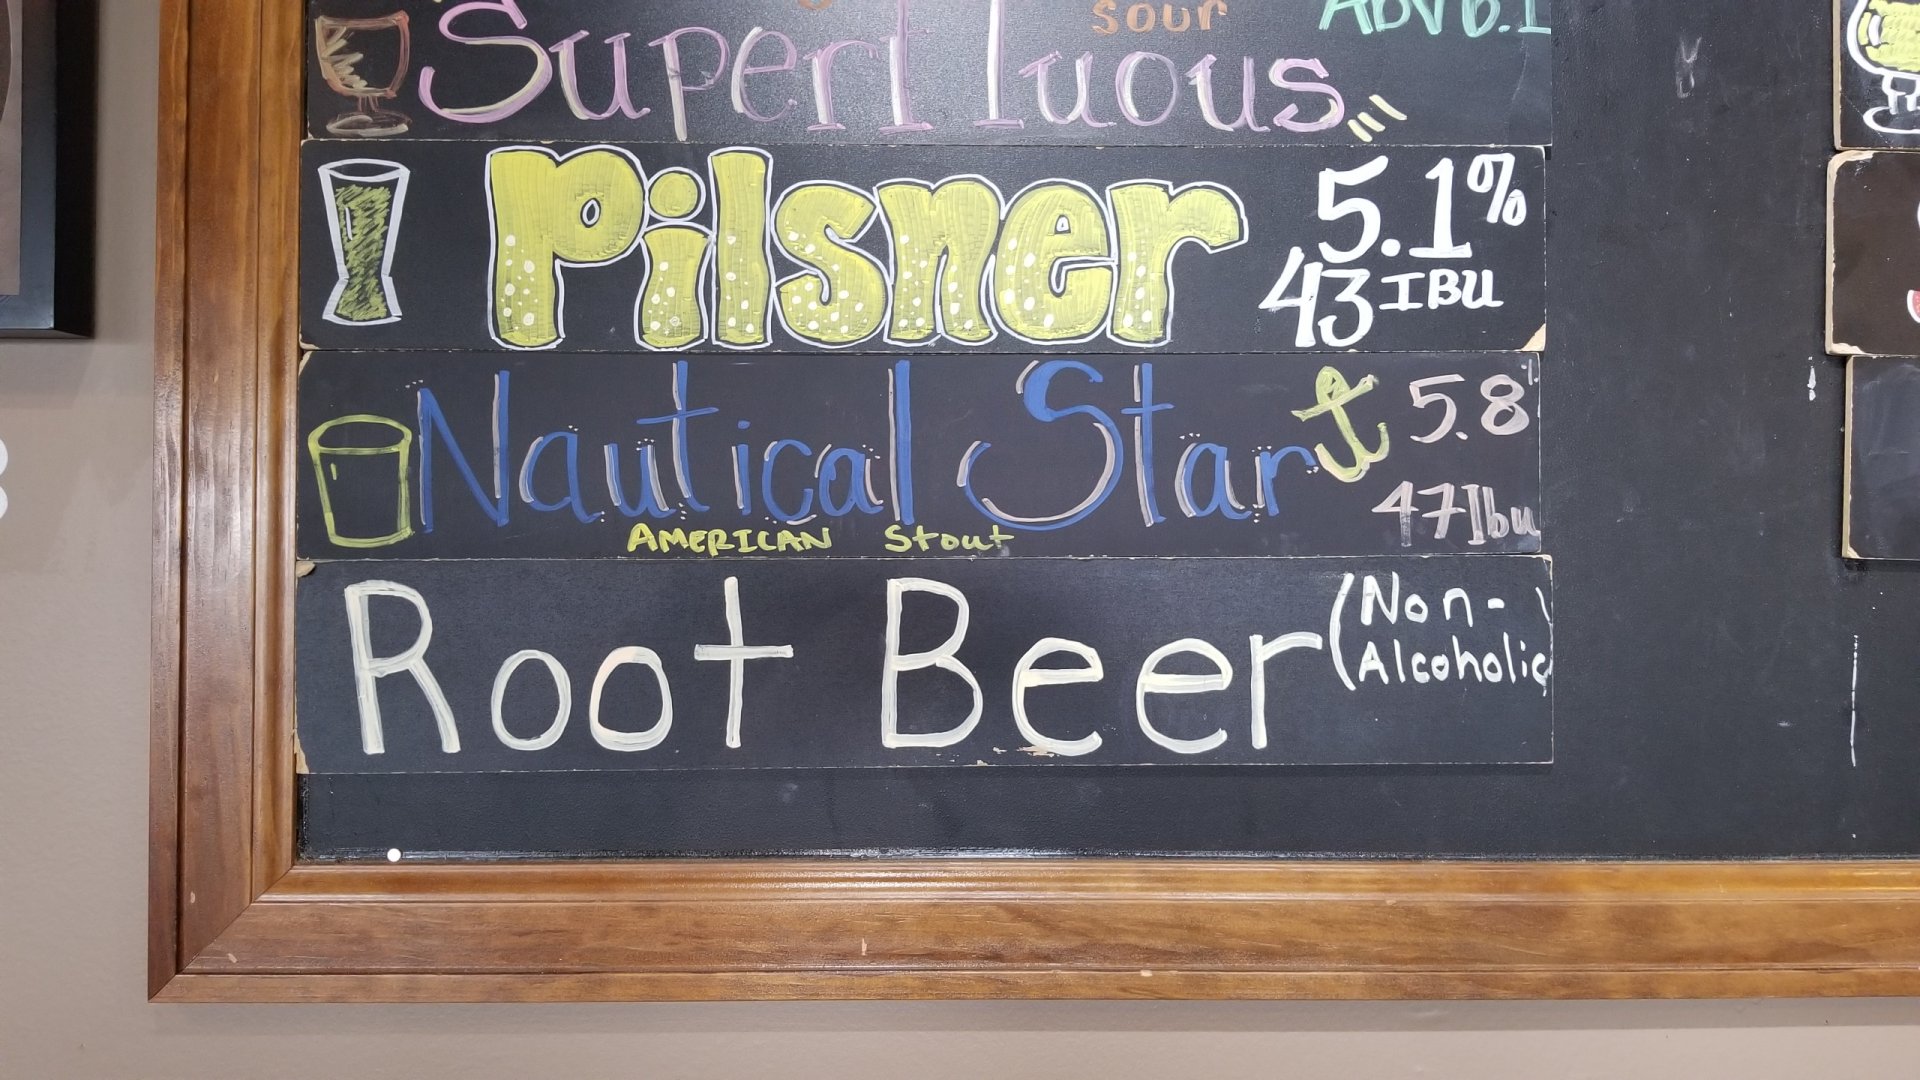 sour
ABV 6.1
Superfluous
Pilsner
5.1%
43 IBU
Nautical Star
5.8%
47 Ibu
AMERICAN Stout
Root Beer
(Non-
Alcoholic)